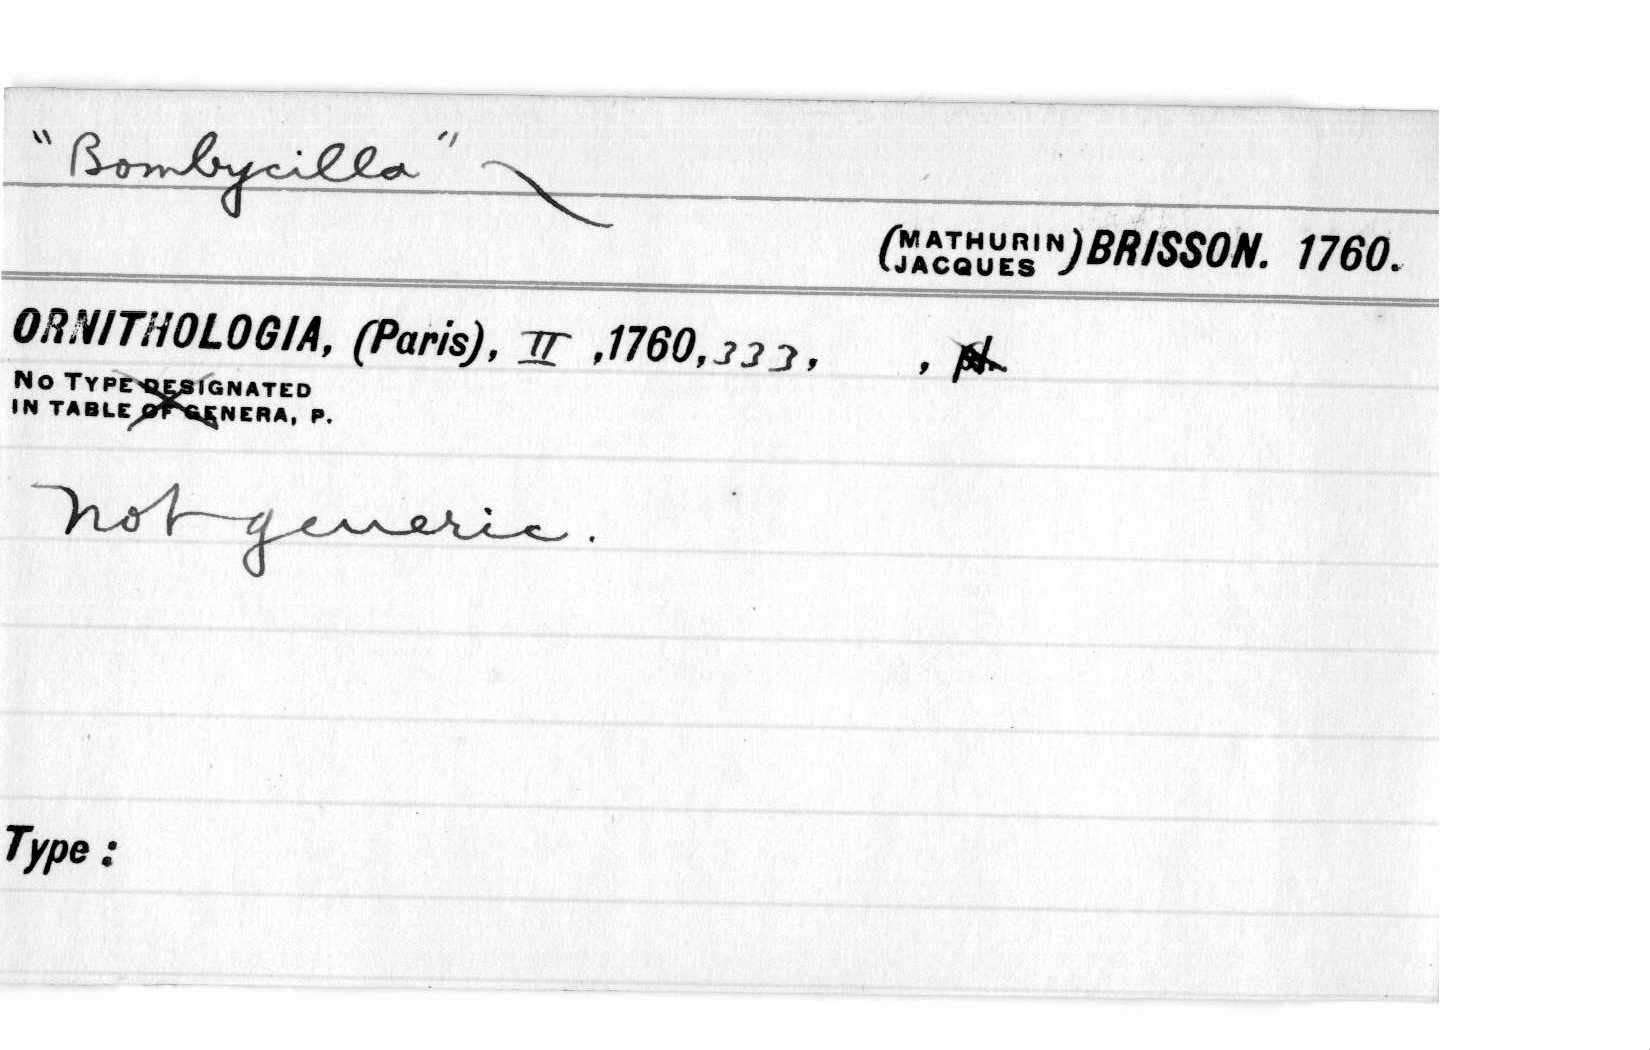 "Bombycilla"
(MATHURIN JACQUES) BRISSON. 1760.
ORNITHOLOGIA, (Paris), II ,1760,333, ,
NO TYPE DESIGNATED
IN TABLE OF GENERA, P.
Not generic.
Type :